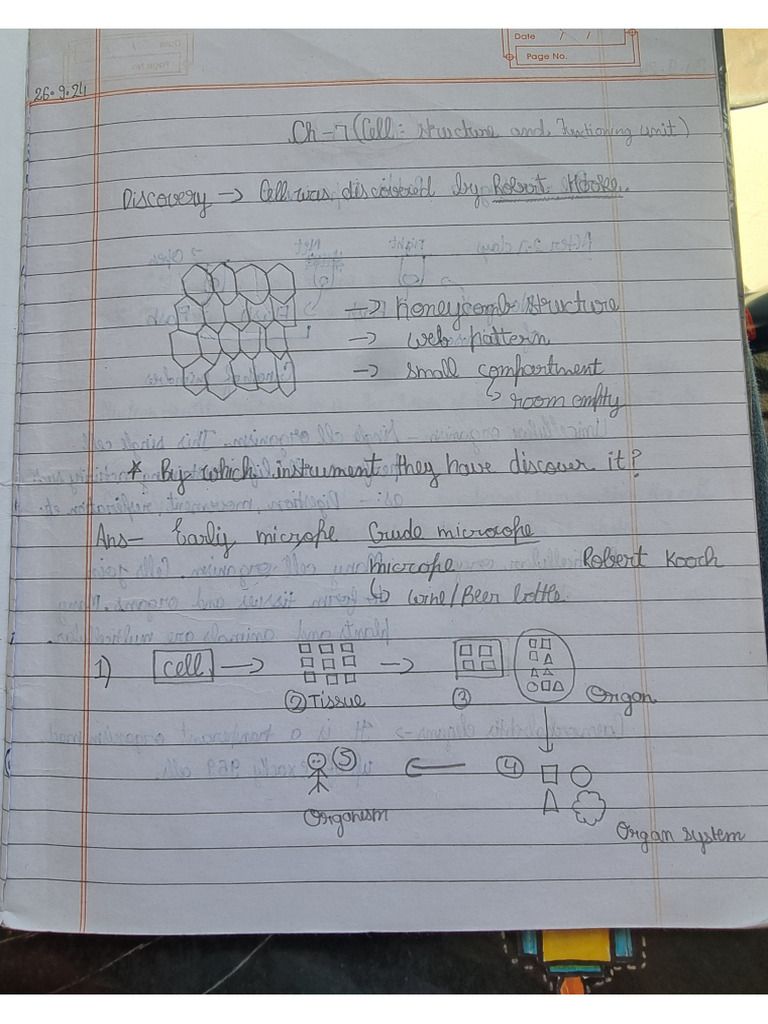 Date / /
Page No.
26.9.24
Ch-7 (Cell: structure and Functioning unit)
Discovery → Cell was discovered by Robert Hooke.
→ honeycomb structure
→ web pattern
→ small compartment
↳ room empty
* By which instrument they have discover it?
Ans- Early micrope Crude microcope
micrope Robert Kooch
↳ wine/Beer bottle
1) cell → → 
② Tissue ③ Organ
⑤ ④
Organism
Organ system